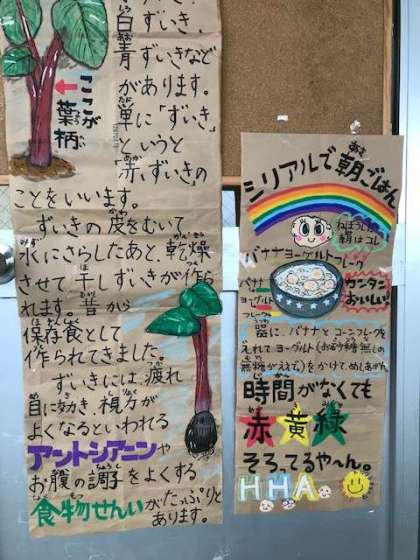 白ずいき、
青ずいきなど
があります。
単に「ずいき」
というと
「赤ずいき」の
ことをいいます。
ここが
葉柄
ずいきの皮をむいて
水にさらしたあと、乾燥
させて干しずいきが作ら
れます。昔から
保存食として
作られてきました。
ずいきには、疲れ
目に効き、視力が
よくなるといわれる
アントシアニンや
お腹の調子をよくする
食物せんいがたっぷりと
あります。
シリアルで朝ごはん
朝はコレ
バナナヨーグルトフレーク
バナナ
ヨーグルト
フレーク
カンタン
おいしい!
器に、バナナとコーンフレークを
入れてヨーグルト(お砂糖無しの
無糖がええで)をかけて、めしあがれ
時間がなくても
赤 黄 緑
そろってるや〜ん。
HHA.